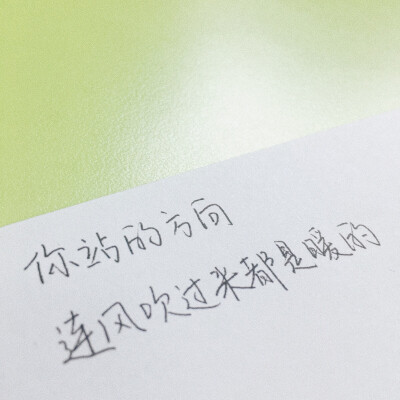 你站的方向
连风吹过来都是暖的